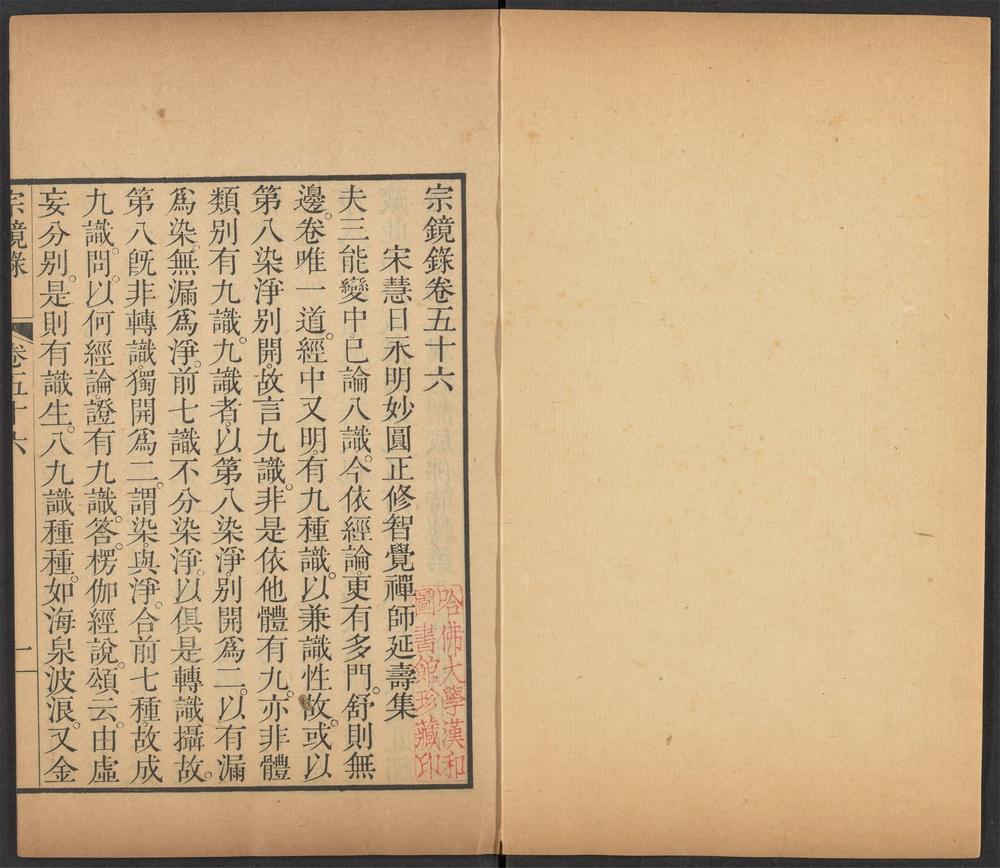 宗鏡錄卷五十六
宋慧日永明妙圓正修智覺禪師延壽集
夫三能變中。已論八識。今依經論。更有多門。舒則無
邊。卷唯一道。經中又明。有九種識。以兼識性故。或以
第八染淨別開。故言九識。非是依他體有九。亦非體
類別有九識。九識者。以第八染淨。別開爲二。以有漏
爲染。無漏爲淨。前七識不分染淨。以俱是轉識攝故。
第八旣非轉識。獨開爲二。謂染與淨。合前七種。故成
九識。問。以何經論。證有九識。答。楞伽經說。頌云。由虛
妄分別。是則有識生。八九識種種。如海泉波浪。又金
宗鏡錄
卷五十六
一
哈佛大學漢和
圖書館珍藏印